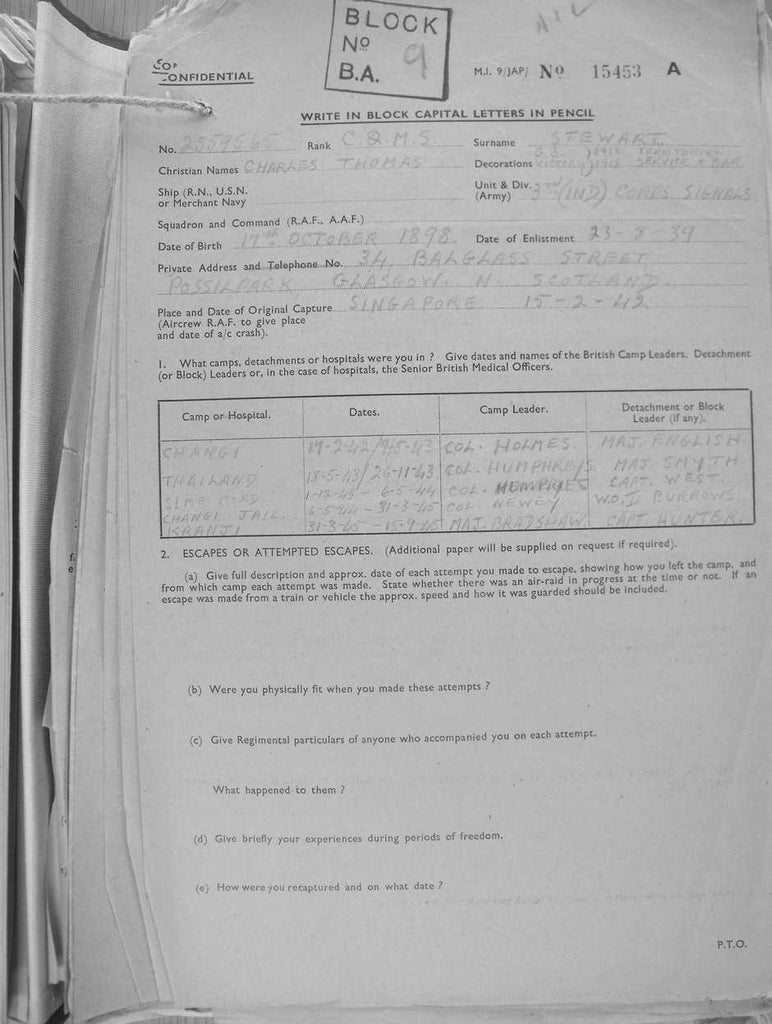 BLOCK
No
B.A. 9
NIL
CONFIDENTIAL
M.I. 9/JAP/ No 15453 A
WRITE IN BLOCK CAPITAL LETTERS IN PENCIL
No. 2559565 Rank C.Q.M.S. Surname STEWART
Christian Names CHARLES THOMAS Decorations
SERVICE & BAR
Ship (R.N., U.S.N. or Merchant Navy
Unit & Div. (Army) 3RD (IND) CORPS SIGNALS
Squadron and Command (R.A.F., A.A.F.)
Date of Birth 17TH OCTOBER 1898 Date of Enlistment 23-8-39
Private Address and Telephone No. 34, BALGLASS STREET
POSSILPARK GLASGOW. N. SCOTLAND.
Place and Date of Original Capture SINGAPORE. 15-2-42
(Aircrew R.A.F. to give place
and date of a/c crash).
1. What camps, detachments or hospitals were you in ? Give dates and names of the British Camp Leaders, Detachment
(or Block) Leaders or, in the case of hospitals, the Senior British Medical Officers.
Camp or Hospital. Dates. Camp Leader. Detachment or Block Leader (if any).
CHANGI COL. HOLMES. MAJ. ENGLISH
THAILAND 18-5-43/26-11-43 COL. HUMPHREYS MAJ. SMYTH
SIME ROAD. 1-12-43 - 6-5-44 COL. HUMPHRIES CAPT. WEST.
CHANGI JAIL. 6-5-44 - 31-3-45 COL NEWEY. W.O.I BURROWS.
KRANJI 31-3-45 - 15-9-45 MAJ. BRADSHAW. CAPT HUNTER.
2. ESCAPES OR ATTEMPTED ESCAPES. (Additional paper will be supplied on request if required).
(a) Give full description and approx. date of each attempt you made to escape, showing how you left the camp, and
from which camp each attempt was made. State whether there was an air-raid in progress at the time or not. If an
escape was made from a train or vehicle the approx. speed and how it was guarded should be included.
(b) Were you physically fit when you made these attempts ?
(c) Give Regimental particulars of anyone who accompanied you on each attempt.
What happened to them ?
(d) Give briefly your experiences during periods of freedom.
(e) How were you recaptured and on what date ?
P.T.O.